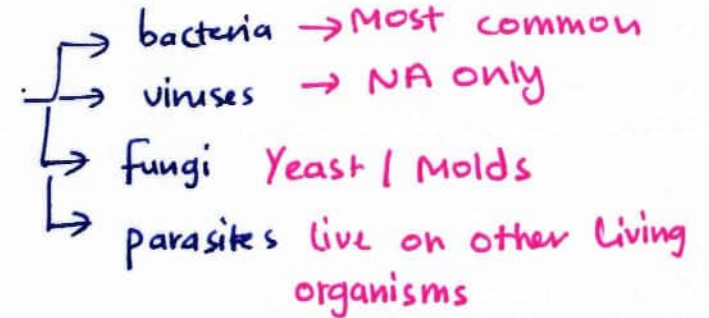 → bacteria → Most common
→ viruses → NA only
→ fungi Yeast / Molds
→ parasites live on other living
organisms